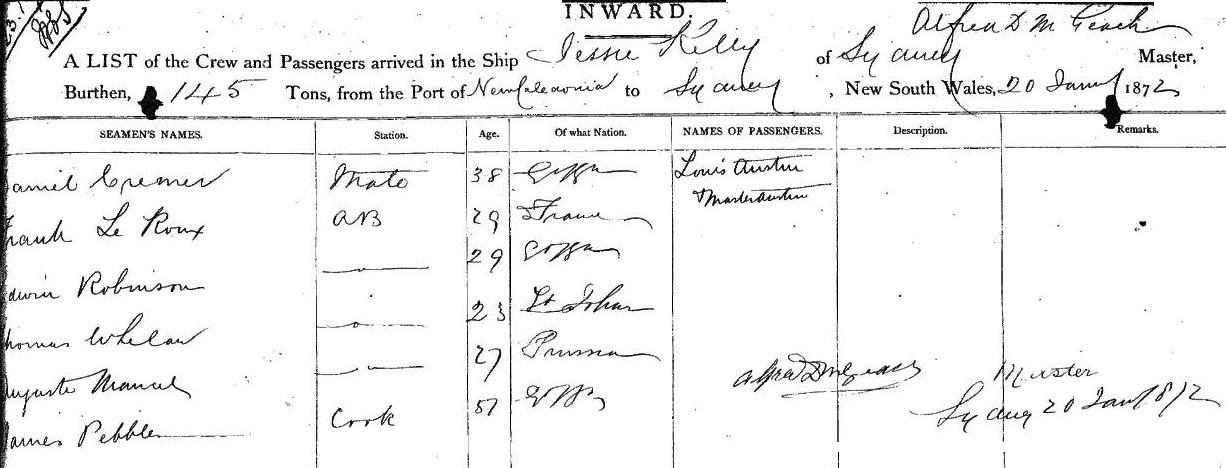 INWARD.
Alfred D McGeach
A LIST of the Crew and Passengers arrived in the Ship Jessie Kelly of Sydney Master,
Burthen, 145 Tons, from the Port of New Caledonia to Sydney, New South Wales, 20 Jany 1872
SEAMEN'S NAMES. Station. Age. Of what Nation. NAMES OF PASSENGERS. Description. Remarks.
Daniel Cremer Mate 38 Louis Austin
Master Austin
Frank Le Roux AB 29 France
Edwin Robinson 29
Thomas Whelan 23 St Johns
Auguste 27 Prussia
James Pebbler Cook 51
Master
Sydney 20 Jany 1872